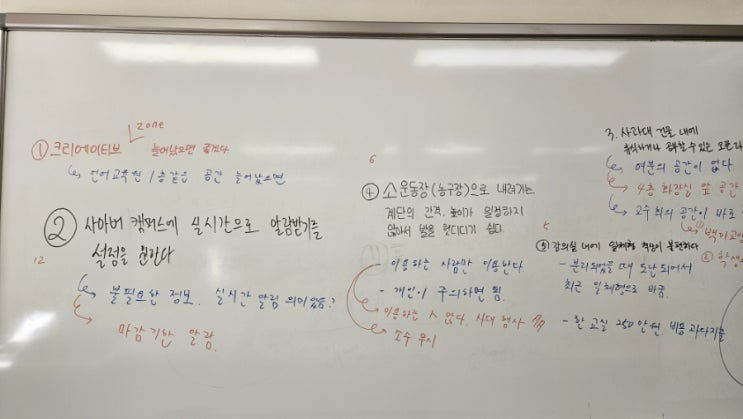 zone
① 크리에이티브 늘어났으면 좋겠다
↳ 언어교육원 1층같은 공간 늘어났으면
② 사이버 캠퍼스에 실시간으로 알람받기를
설정을 원한다
12
↳ 불필요한 정보. 실시간 알림 의미 있음?
마감기한 알람.
6
④ 소운동장(농구장)으로 내려가는
계단의 간격, 높이가 일정하지
않아서 발을 헛디디기 쉽다.
이용하는 사람만 이용한다.
- 개인이 주의하면 됨.
이용하는 사람 없다. 사대 행사
소수 무시
3. 사과대 건물 내에
휴식하거나 공부할 수 있는
↳ 여분의 공간이 없다.
4층 화장실 앞 공간
↳ 교수회의 공간이 바로
5
⑤ 강의실 내에 일체형 책상이 불편하다
- 분리되었을 때 도난 되어서
최근 일체형으로 바꿈.
- 한 교실 250만원. 비용 과다지출